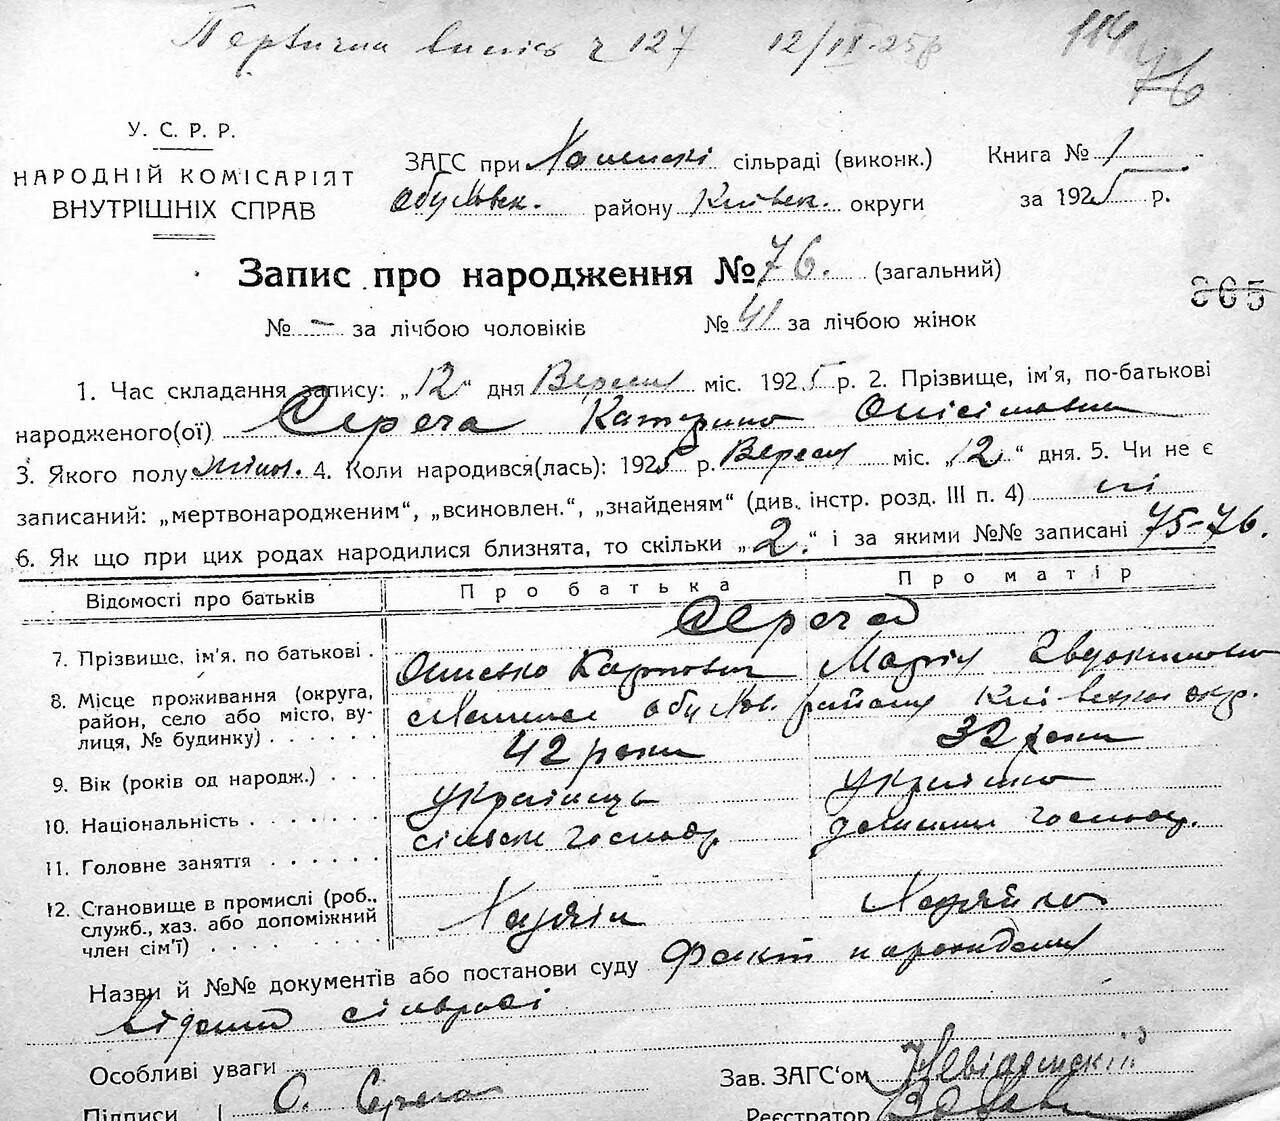 Первична випись ч 127 12/IX-25р
114 76
У. С. Р. Р.
НАРОДНІЙ КОМІСАРІЯТ
ВНУТРІШНІХ СПРАВ
ЗАГС при сільраді (виконк.)
Обухівськ. району Київськ. округи
Книга № 1
за 1925 р.
Запис про народження № 76. (загальний)
865
№ – за лічбою чоловіків № 41 за лічбою жінок
1. Час складання запису: „12“ дня Вересня міс. 1925 р. 2. Прізвище, ім'я, по-батькові
народженого(ої) Катерина Онісімовна
3. Якого полу жіноч. 4. Коли народився(лась): 1925 р. Вересня міс. „12“ дня. 5. Чи не є
записаний: „мертвонародженим“, „всиновлен.“, „знайденям“ (див. інстр. розд. III п. 4) ні
6. Як що при цих родах народилися близнята, то скільки „2“ і за якими №№ записані 75-76.
Відомості про батьків Про батька Про матір
7. Прізвище, ім'я, по батькові . Карпович Марія Євдокимовна
8. Місце проживання (округа,
район, село або місто, ву-
лиця, № будинку) . . . . . . Обухов. району Київської окр.
9. Вік (років од народж.) . . . 42 роки 32 роки
10. Національність . . . . . . . українець українка
11. Головне заняття . . . . . . сільськ господ. домашнє господ.
12. Становище в промислі (роб.,
служб., хаз. або допоміжний
член сім'ї) . . . . . . . . . Хазяїн Хазяйка
Назви й №№ документів або постанови суду Факт народження
відомий сільраді
Особливі уваги
Зав. ЗАГС'ом
Підписи О.
Реєстратор